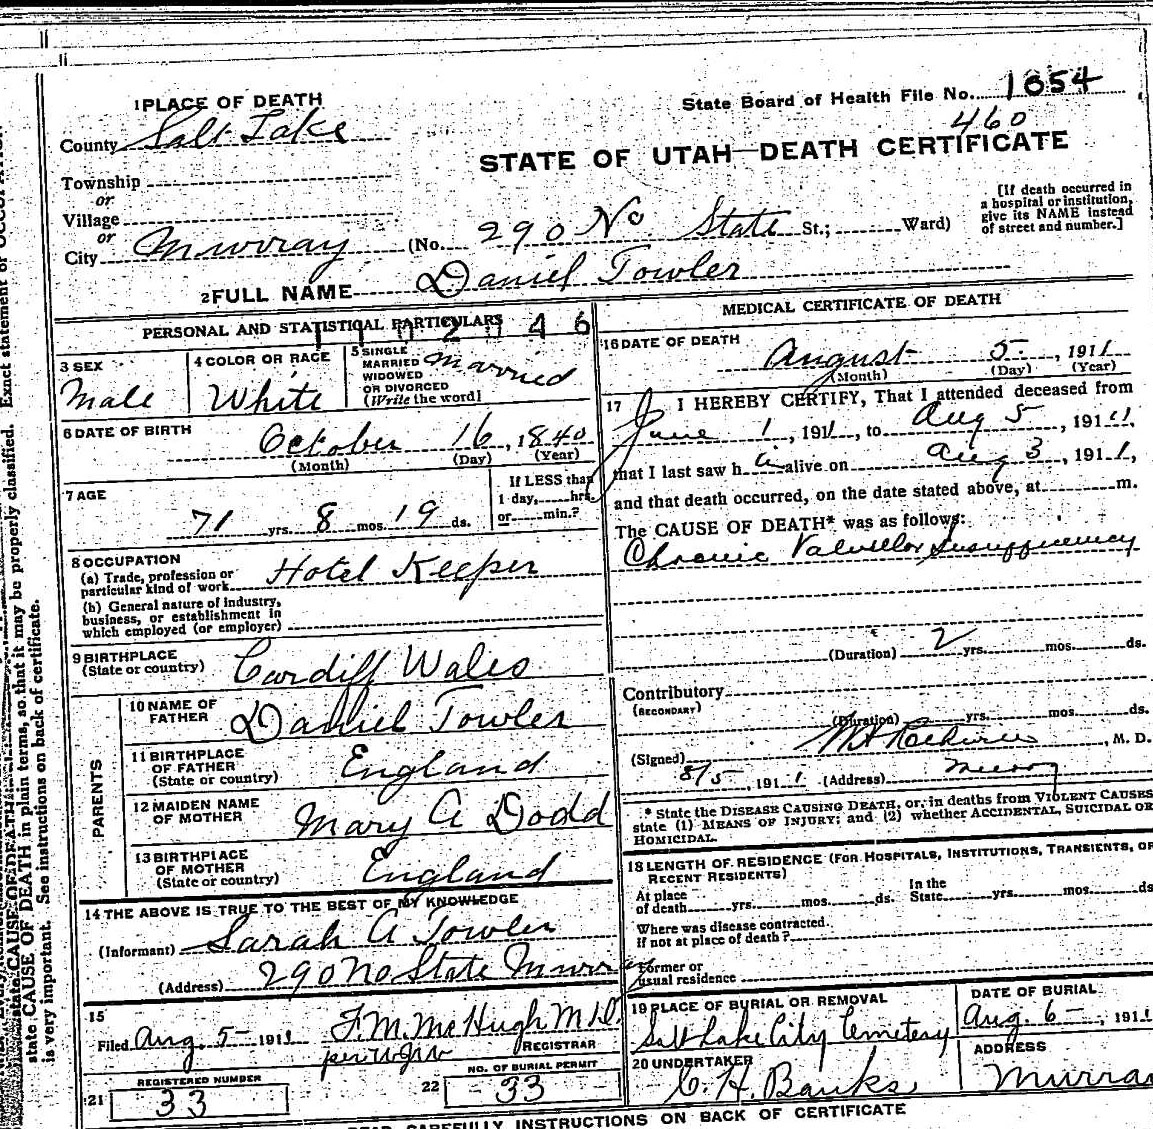 1 PLACE OF DEATH
State Board of Health File No. 1054
County Salt Lake
460
STATE OF UTAH—DEATH CERTIFICATE
Township
or
Village
or
City Murray (No. 290 No State St.; Ward)
[If death occurred in
a hospital or institution,
give its NAME instead
of street and number.]
2 FULL NAME Daniel Towler
PERSONAL AND STATISTICAL PARTICULARS
3 SEX
Male
4 COLOR OR RACE
White
5 SINGLE
MARRIED
WIDOWED
OR DIVORCED
(Write the word)
Married
6 DATE OF BIRTH
October 16, 1840
(Month) (Day) (Year)
7 AGE
71 yrs. 8 mos. 19 ds.
If LESS than
1 day, hrs.
or min.?
8 OCCUPATION
(a) Trade, profession or
particular kind of work Hotel Keeper
(b) General nature of industry,
business, or establishment in
which employed (or employer)
9 BIRTHPLACE
(State or country) Cardiff Wales
PARENTS
10 NAME OF
FATHER Daniel Towler
11 BIRTHPLACE
OF FATHER
(State or country) England
12 MAIDEN NAME
OF MOTHER Mary A Dodd
13 BIRTHPLACE
OF MOTHER
(State or country) England
14 THE ABOVE IS TRUE TO THE BEST OF MY KNOWLEDGE
(Informant) Sarah A Towler
(Address) 290 No State Murray
15
Filed Aug. 5 1911 F. M. McHugh M.D.
REGISTRAR
21 REGISTERED NUMBER
33
22 NO. OF BURIAL PERMIT
33
MEDICAL CERTIFICATE OF DEATH
16 DATE OF DEATH
August 5, 1911
(Month) (Day) (Year)
17 I HEREBY CERTIFY, That I attended deceased from
June 1, 1911, to Aug 5, 1911,
that I last saw h alive on Aug 3, 1911,
and that death occurred, on the date stated above, at m.
The CAUSE OF DEATH* was as follows:
Chronic Valvular Insufficiency
(Duration) 2 yrs. mos. ds.
Contributory
(SECONDARY)
(Duration) yrs. mos. ds.
(Signed) , M. D.
8/5, 1911 (Address) Murray
* State the DISEASE CAUSING DEATH, or, in deaths from VIOLENT CAUSES
state (1) MEANS OF INJURY; and (2) whether ACCIDENTAL, SUICIDAL OR
HOMICIDAL.
18 LENGTH OF RESIDENCE (FOR HOSPITALS, INSTITUTIONS, TRANSIENTS, OR
RECENT RESIDENTS)
At place
of death yrs. mos. ds.
In the
State yrs. mos. ds
Where was disease contracted.
if not at place of death?
Former or
usual residence
19 PLACE OF BURIAL OR REMOVAL
Salt Lake City Cemetery
DATE OF BURIAL
Aug. 6, 1911
20 UNDERTAKER
C. H. Banks
ADDRESS
Murray
READ CAREFULLY INSTRUCTIONS ON BACK OF CERTIFICATE
state CAUSE OF DEATH in plain terms, so that it may be properly classified. Exact statement of OCCUPATION
is very important. See instructions on back of certificate.